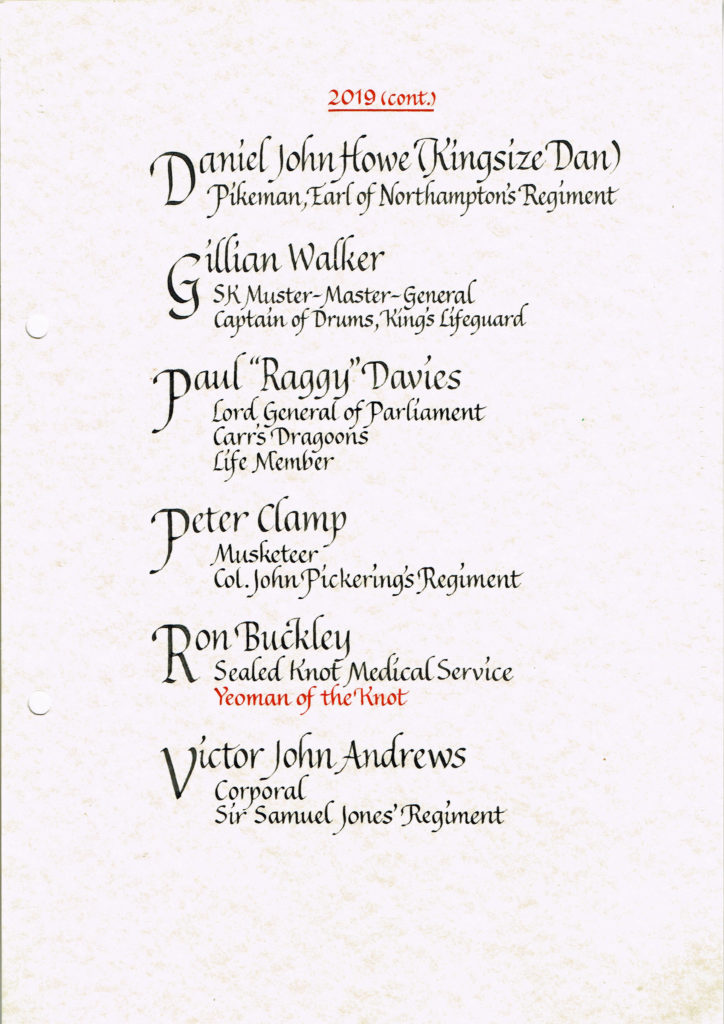 2019 (cont.)
Daniel John Howe (Kingsize Dan)
Pikeman, Earl of Northampton's Regiment
Gillian Walker
SK Muster-Master-General
Captain of Drums, King's Lifeguard
Paul "Raggy" Davies
Lord General of Parliament
Carr's Dragoons
Life Member
Peter Clamp
Musketeer
Col. John Pickering's Regiment
Ron Buckley
Sealed Knot Medical Service
Yeoman of the Knot
Victor John Andrews
Corporal
Sir Samuel Jones' Regiment